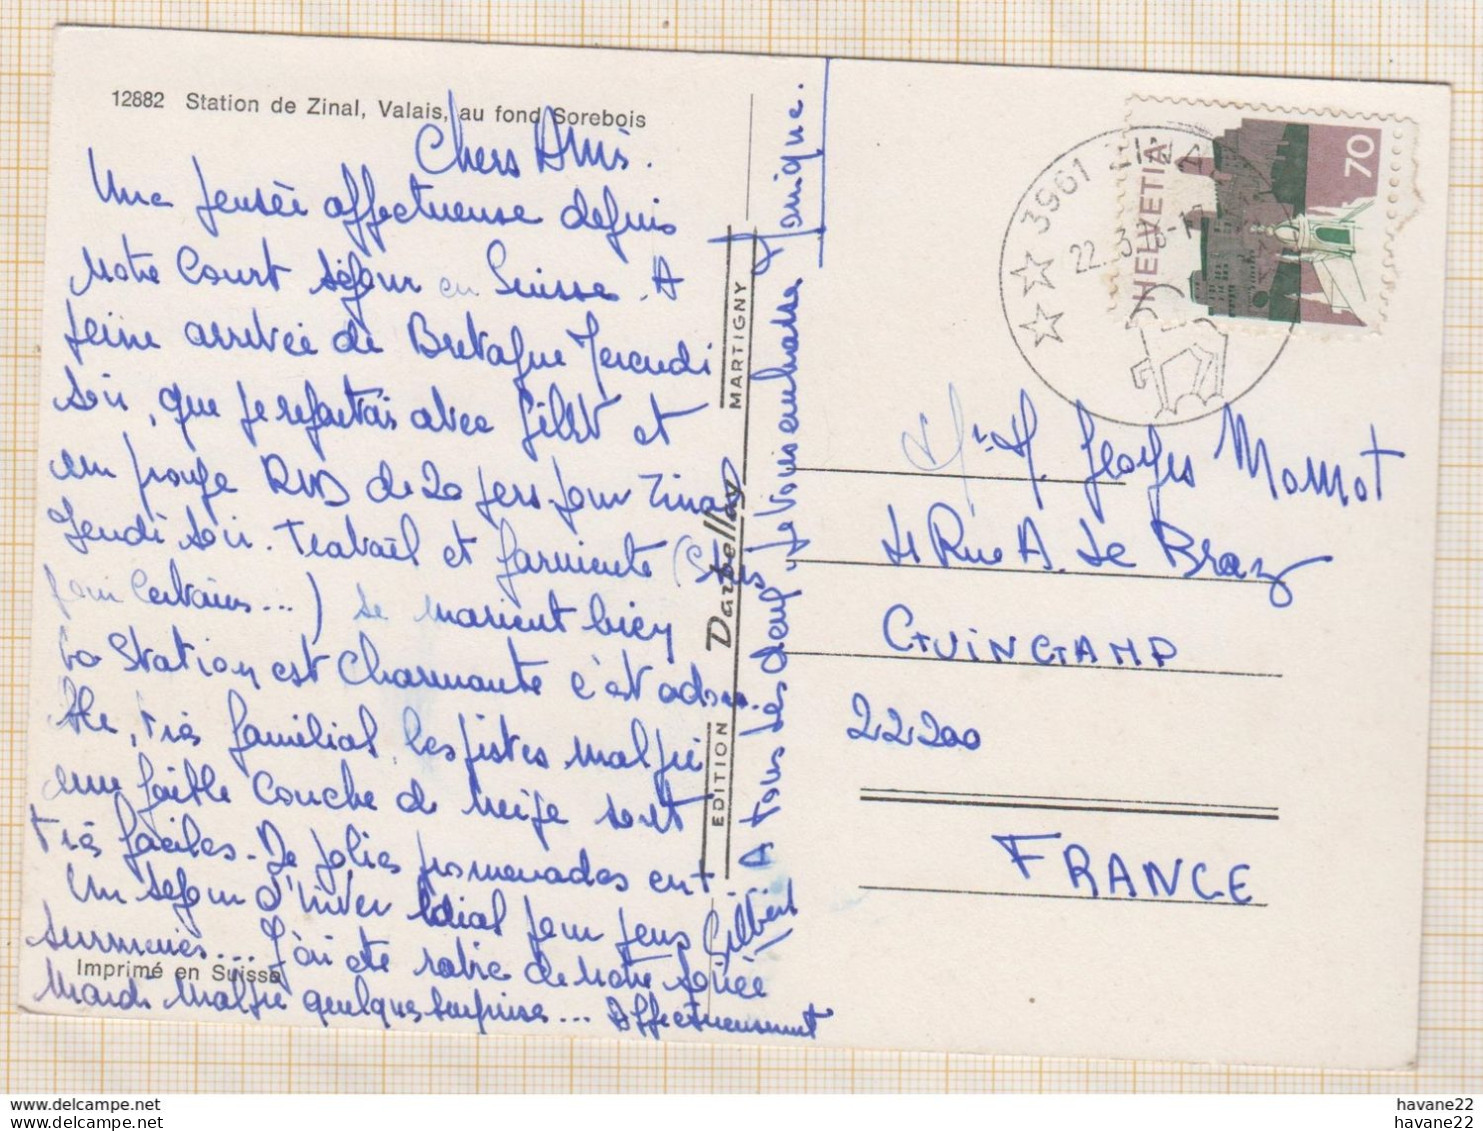 12882 Station de Zinal, Valais, au fond Sorebois
Chers Amis.
Une pensée affectueuse depuis
Notre Court séjour en Suisse. A
peine arrivée de Bretagne
soir, que je repartais avec Gilbt et
un groupe de 20 pers. pour Zinal
Jeudi soir. Travail et farniente (
pour certains...) se marient bien
La Station est charmante c'est
très familial, les pistes malgré
une faible couche de neige sont
très faciles. De jolies promenades ent.
Un séjour d'hiver idéal pour gens
surmenés... J'ai été ravie de notre soirée
Mardi malgré quelques surprises... Affectueusement
Gilbert
A tous les deux, je vous embrasse
Monique.
EDITION Darbellay MARTIGNY
Imprimé en Suisse
HELVETIA
70
3961 ZINAL
22.3
M. Georges
4 Rue A. Le Braz
GUINGAMP
22200
FRANCE
havane22
havane22
havane22
havane22